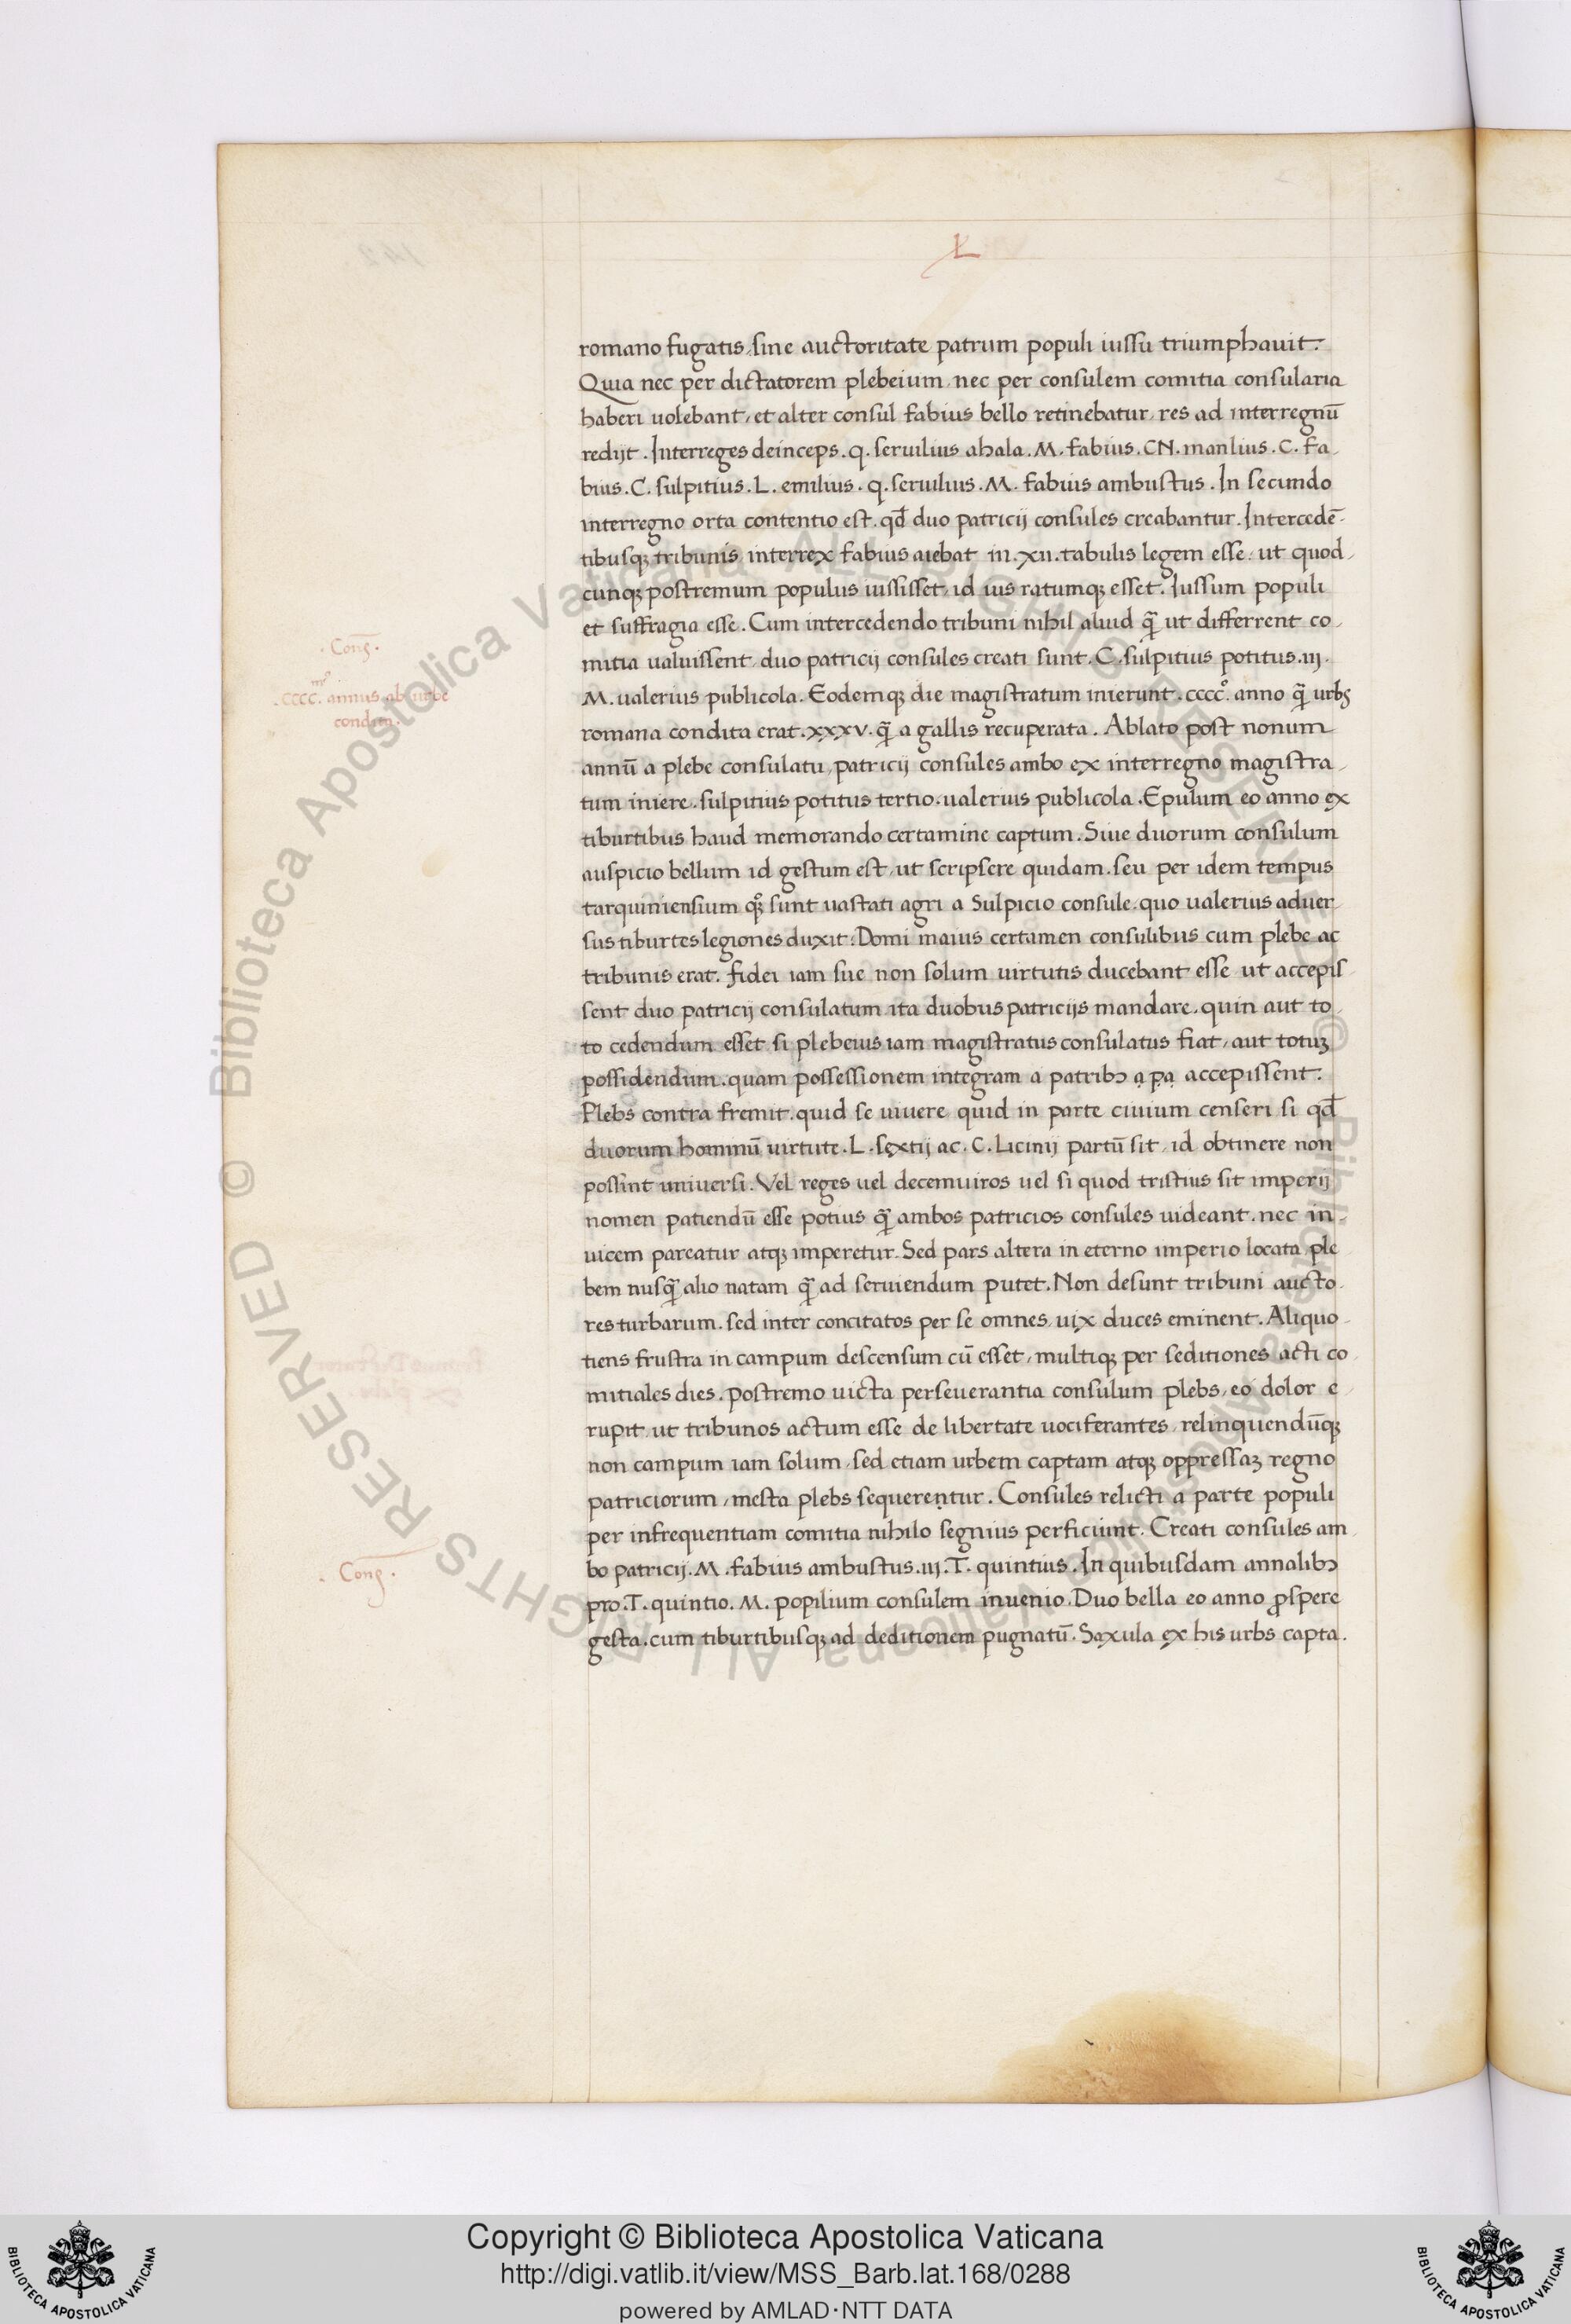 L
romano fugatis, sine auctoritate patrum populi iussu triumphauit.
Quia nec per dictatorem plebeium, nec per consulem comitia consularia
haberi uolebant, et alter consul fabius bello retinebatur, res ad interregnū
redijt. Interreges deinceps. q. seruilius ahala. M. fabius. CN. manlius. C. fa,
bius. C. sulpitius. L. emilius. q. seruilius. M. fabius ambustus. In secundo
interregno orta contentio est. qđ duo patricij consules creabantur. Intercedē-
tibusqꝫ tribunis interrex fabius aiebat in .xii. tabulis legem esse, ut quod,
cunqꝫ postremum populus iussisset, id ius ratumqꝫ esset. Iussum populi
et suffragia esse. Cum intercedendo tribuni nihil aliud q̄ ut differrent co,
mitia ualuissent, duo patricij consules creati sunt. C. sulpitius potitus .iij.
M. ualerius publicola. Eodemqꝫ die magistratum inierunt. cccc° anno q̄ urbs
romana condita erat. xxxv. q̄ a gallis recuperata. Ablato post nonum
annū a plebe consulatu, patricij consules ambo ex interregno magistra,
tum iniere. sulpitius potitus tertio. ualerius publicola. Epulum eo anno ex
tiburtibus haud memorando certamine captum. Siue duorum consulum
auspicio bellum id gestum est, ut scripsere quidam. seu per idem tempus
tarquiniensium qꝫ sunt uastati agri a Sulpicio consule, quo ualerius aduer,
sus tiburtes legiones duxit. Domi maius certamen consulibus cum plebe ac
tribunis erat. fidei iam sue non solum uirtutis ducebant esse, ut accepis
sent duo patricij consulatum ita duobus patricijs mandare. quin aut to,
to cedendum esset si plebeius iam magistratus consulatus fiat, aut totuꝫ
possidendum. quam possessionem integram a patribꝫ a pa accepissent.
Plebs contra fremit. quid se uiuere, quid in parte ciuium censeri si qđ
duorum hominū uirtute. L. sextij ac. C. Licinij partū sit, id obtinere non
possint uniuersi. Vel reges uel decemuiros uel si quod tristius sit imperij
nomen patiendū esse potius q̄ ambos patricios consules uideant. nec in-
uicem pareatur atqꝫ imperetur. Sed pars altera in eterno imperio locata, ple
bem nusq̄ alio natam q̄ ad seruiendum putet. Non desunt tribuni aucto,
res turbarum. sed inter concitatos per se omnes, uix duces eminent. Aliquo-
tiens frustra in campum descensum cū esset, multiqꝫ per seditiones acti co,
mitiales dies. postremo uicta perseuerantia consulum plebs, eo dolor e,
rupit, ut tribunos actum esse de libertate uociferantes, relinquendūqꝫ
non campum iam solum, sed etiam urbem captam atqꝫ oppressaꝫ regno
patriciorum, mesta plebs sequerentur. Consules relicti a parte populi
per infrequentiam comitia nihilo segnius perficiunt. Creati consules am,
bo patricij. M. fabius ambustus .iij. T. quintius. In quibusdam annalibꝫ
pro. T. quintio. M. popilium consulem inuenio. Duo bella eo anno ꝓspere
gesta. cum tiburtibusqꝫ ad deditionem pugnatū. Saxula ex his urbs capta.
. Cons̄.
.CCCC.mus annus ab urbe
condita.
. Cons̄.
© Biblioteca Apostolica Vaticana ALL RIGHTS RESERVED
© Biblioteca Apostolica Vaticana ALL RIGHTS RESERVED
Copyright © Biblioteca Apostolica Vaticana
http://digi.vatlib.it/view/MSS_Barb.lat.168/0288
powered by AMLAD·NTT DATA
BIBLIOTECA APOSTOLICA VATICANA
BIBLIOTECA APOSTOLICA VATICANA